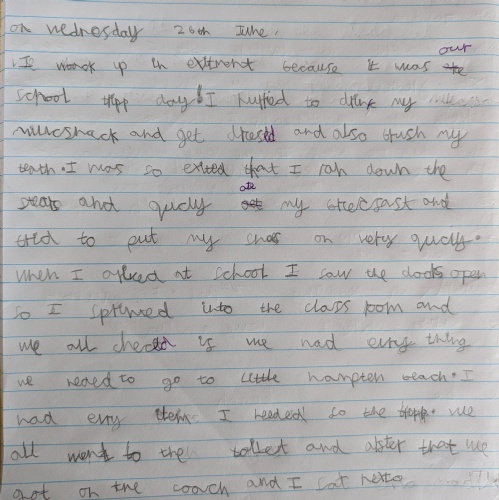 on wednesday 26th June.
I wonck up in extirent because it was our
school tripp day! I huffed to drink my
milkshack and get dresed and also brush my
teath. I was so exited that I ran down the
stears and quicly ate my brecsast and
tried to put my shos on very quicly.
when I arived at school I saw the doors open
so I sprinted into the class room and
we all checed is we had evry thing
we neded to go to Little hampten beach. I
had evry item I needed so the tripp. we
all went to the tollest and abter that we
got on the coach and I sat next